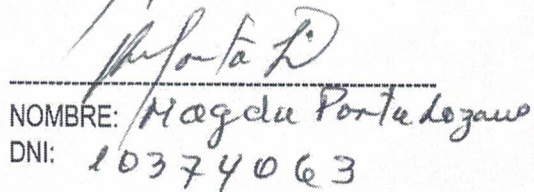 NOMBRE: Magda Porta Lozano
DNI: 10374063